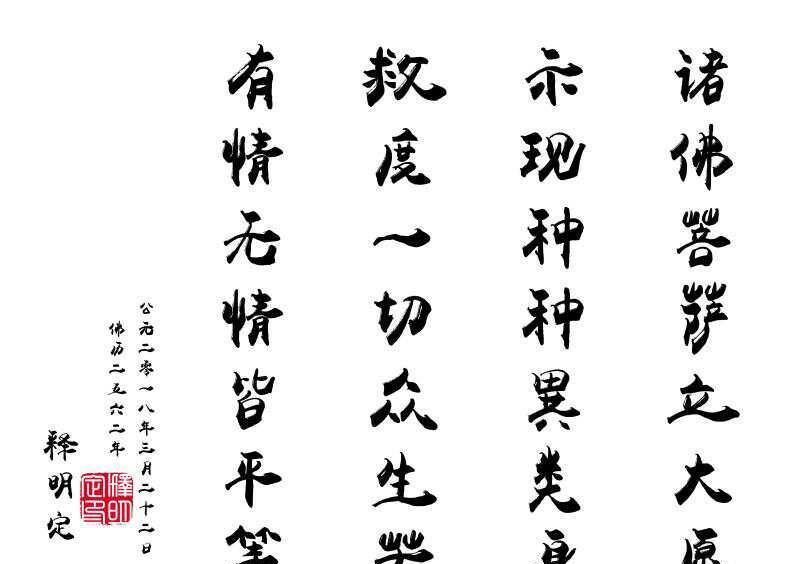 诸佛菩萨立大愿
示现种种異类身
救度一切众生苦
有情无情皆平等
公元二零一八年三月二十二日
佛历二五六二年
释明定
釋明定印